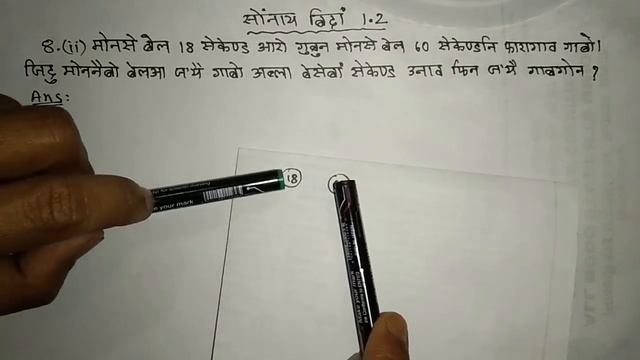 सोंनाय बिदां 1.2
8.(ii) मोनसे बेल 18 सेकेण्ड आरो गुबुन मोनसे बेल 60 सेकेण्डनि फारागाव गाबो।
जिदु मोननैबो बेलआ ज'यै गाबो अब्ला बेसेबां सेकेण्ड उनाव फिन ज'यै गाबगोन ?
Ans:
18